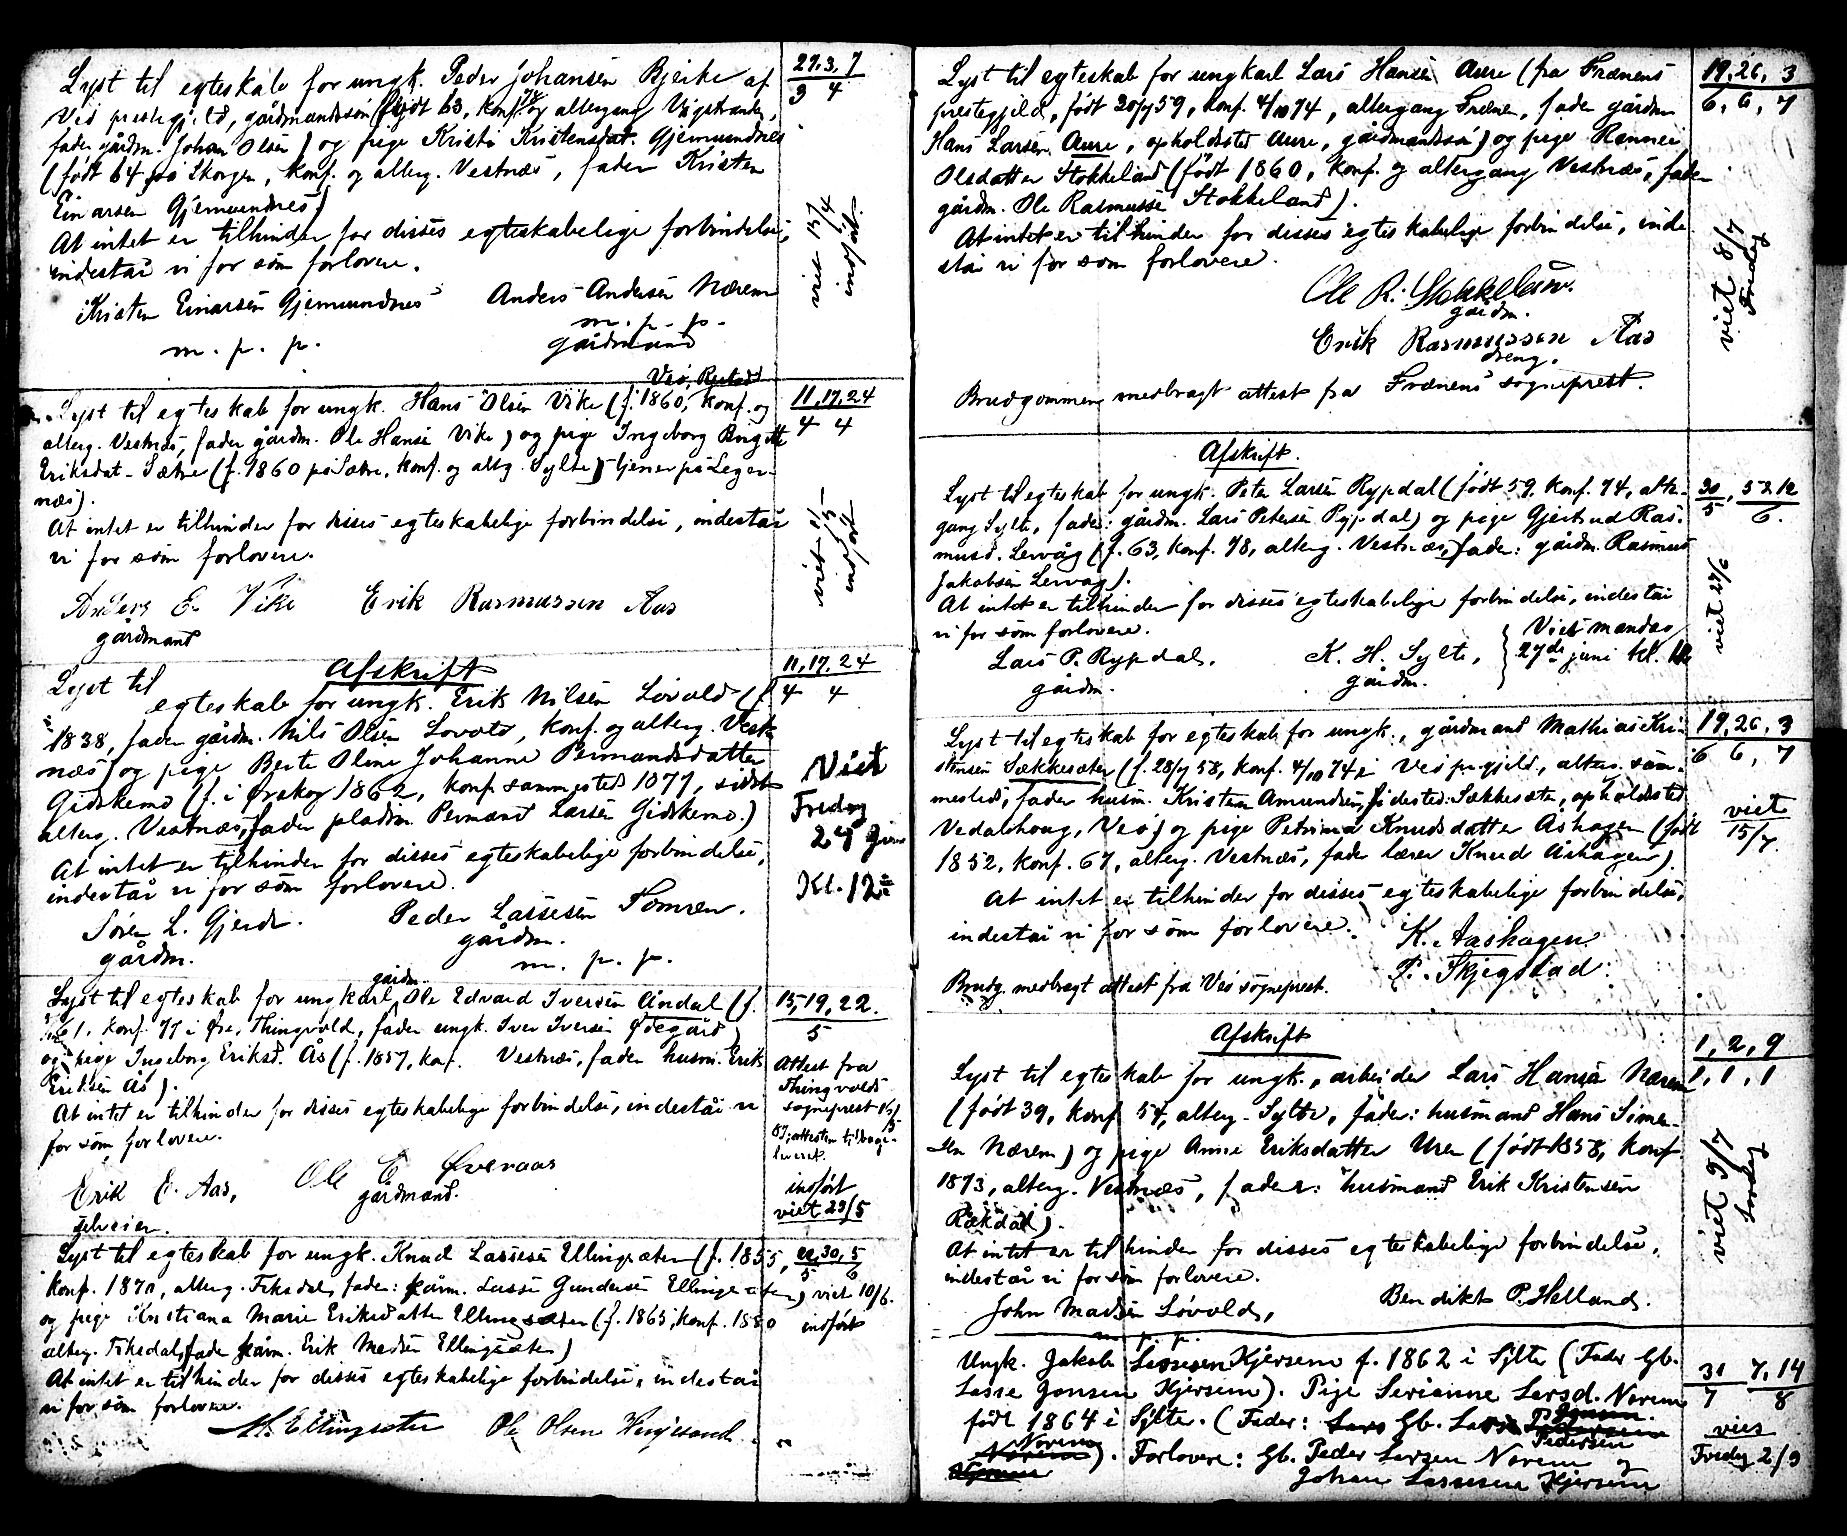 Lyst til egteskab for ungk. Peder Johansen Bjerke af
Vid prestegjeld, gårdmandssøn (født 63, konf. 78 og altergang Vigstranden,
fader gårdm. Johan Olsen) og pige Kristi Kristensdat. Gjermundnes
(født 64 på Skorgen, konf. og alterg. Vestnæs, fader Kristen
Einarsen Gjermundnes)
At intet er tilhinder for disses egteskabelige forbindelse,
indestår vi for som forlovere.
Kristen Einarsen Gjermundnes Anders Andersen Nærem
m. p. p. m. p. p.
gårdmand
27. 3, 7
3 4
viet 15/4
indført
Veø, Restad
Lyst til egteskab for ungk. Hans Olsen Vike (f. 1860, konf. og
alterg. Vestnæs, fader gårdm. Ole Hansen Vike) og pige Ingeborg Birgitte
Eriksdat. Sætre (f. 1860 på Sætre, konf. og altg. Sylte) tjener på Leger-
næs).
At intet er tilhinder for disses egteskabelige forbindelse, indestår
vi for som forlovere.
Anders E. Vike Erik Rasmussen Aas
gårdmand
11, 17, 24
4 4
viet
indført
Afskrift
Lyst til
egteskab for ungk. Erik Nilsen Løvold (f.
1838, fader gårdm. Nils Olsen Løvold, konf. og alterg. Vest-
næs) og pige Berte Oline Johanne Permandsdatter
Gidskemo (f. i Ørskog 1862, konf. sammested 1877, sidst
alterg. Vestnæs, fader pladsm. Permand Larsen Gidskemo.)
At intet er tilhinder for disses egteskabelige forbindelse,
indestår vi for som forlovere.
Søren L. Gjerde. Peder Lassesen Tomren.
gårdm. gårdm.
m. p. p.
11, 17, 24
4 4
Viet
Fredag
24 Juni
Kl. 12
gårdm.
Lyst til egteskab for ungkarl Ole Edvard Iversen Åndal (f.
61, konf. 77 i Øre, Thingvold, fader ungk. Iver Iversen Ødegård)
og pige Ingeborg Eriksd. Ås (f. 1857, konf. Vestnæs, fader husm. Erik
Eriksen Ås).
At intet er tilhinder for disses egteskabelige forbindelse, indestår vi
for som forlovere.
Erik E. Aas, Ole E. Øveraas
selveier. gårdmand.
15, 19, 22.
5
Attest fra
Thingvolds
sogneprest
87, attesten tilbage-
leveret.
indført
viet 29/5
Lyst til egteskab for ungk. Knud Lassesen Ellingsæter (f. 1855,
konf. 1870, alterg. Fiksdal, fader: kårm. Lasse Gundersen Ellingsæter)
og pige Kristiana Marie Eriksdatter Ellingsæter (f. 1865, konf. 1880
alterg. Fiksdal, fader kårm. Erik Madsen Ellingsæter)
At intet er tilhinder for disses egteskabelige forbindelse, indestår
vi for som forlovere.
M. Ellingsæter Ole Olsen
22, 30, 5
5 6
viet 10/6.
indført
Lyst til egteskab for ungkarl Lars Hansen Aure (fra Frænens
prestegjeld, født 20/7 59, konf. 4/10 74, altergang Frænen, fader gårdm.
Hans Larsen Aure, opholdsted Aure, gårdmandssøn) og pige Rønnei
Olsdatter Stokkeland (født 1860, konf. og altergang Vestnæs, fader
gårdm. Ole Rasmussen Stokkeland).
At intet er tilhinder for disses egteskabelige forbindelse, inde-
står vi for som forlovere.
Ole R. Stokkeland.
gårdm.
Erik Rasmussen Aas
dreng.
Brudgommen medbragt attest fra Frænens sogneprest.
19, 26, 3
6, 6, 7
viet 8/7
Fredag
Afskrift.
Lyst til egteskab for ungk. Peter Larsen Rypdal (født 59, konf. 74, alter-
gang Sylte, fader: gårdm. Lars Petersen Rypdal) og pige Gjertrud Ras-
musd. Lervåg (f. 63, konf. 78, alterg. Vestnæs, fader: gårdm. Rasmus
Jakobsen Lervåg).
At intet er tilhinder for disses egteskabelige forbindelse, indestår
vi for som forlovere.
Lars P. Rypdal. K. H. Sylte,
gårdm. gårdm.
Viet mandag
27de juni kl.
30, 5 & 12
5 6.
viet 27/6
Lyst til egteskab for egteskab for ungk., gårdmand Mathias Kri-
stensen Sækkesæter (f. 28/7 58, konf. 4/10 74 i Veø prgjeld, alterg. sam-
mested, fader husm. Kristen Amundsen, fødested: Sækkesæter, opholdsted
Vedalshoug, Veø) og pige Petrina Knudsdatter Åshagen (født
1852, konf. 67, alterg. Vestnæs, fader lærer Knud Åshagen).
At intet er tilhinder for disses egteskabelige forbindelse,
indestår vi for som forlovere.
K. Aashagen
P. Skjegstad.
Brudg. medbragt attest fra Veø sogneprest.
19, 26, 3
6 6, 7
viet
15/7.
Afskrift
Lyst til egteskab for ungk., arbeider Lars Hansen Nærem
(født 39, konf. 54, alterg. Sylte, fader: husmand Hans Simen-
sen Nærem) og pige Anne Eriksdatter Uren (født 1858, konf.
1873, alterg. Vestnæs, fader: husmand Erik Kristensen
Rækdal).
At intet er tilhinder for disses egteskabelige forbindelse,
indestår vi for som forlovere.
John Madsen Løvold, Bendikt P. Helland.
m. p. p.
1, 2, 9
1, 1, 1
viet 9/7
Lørdag
Ungk. Jakob Lassesen Kjersem f. 1862 i Sylte (Fader Gb.
Lasse Jonsen Kjersem). Pige Serianne Larsd. Norem
født 1864 i Sylte. (Fader: Lars Gb. Lars
Pedersen
Norem). Forlovere: Gb. Peder Larsen Norem og
Johan Lassesen Kjersem
31 7, 14
7 8
viet
Fredag 2/9